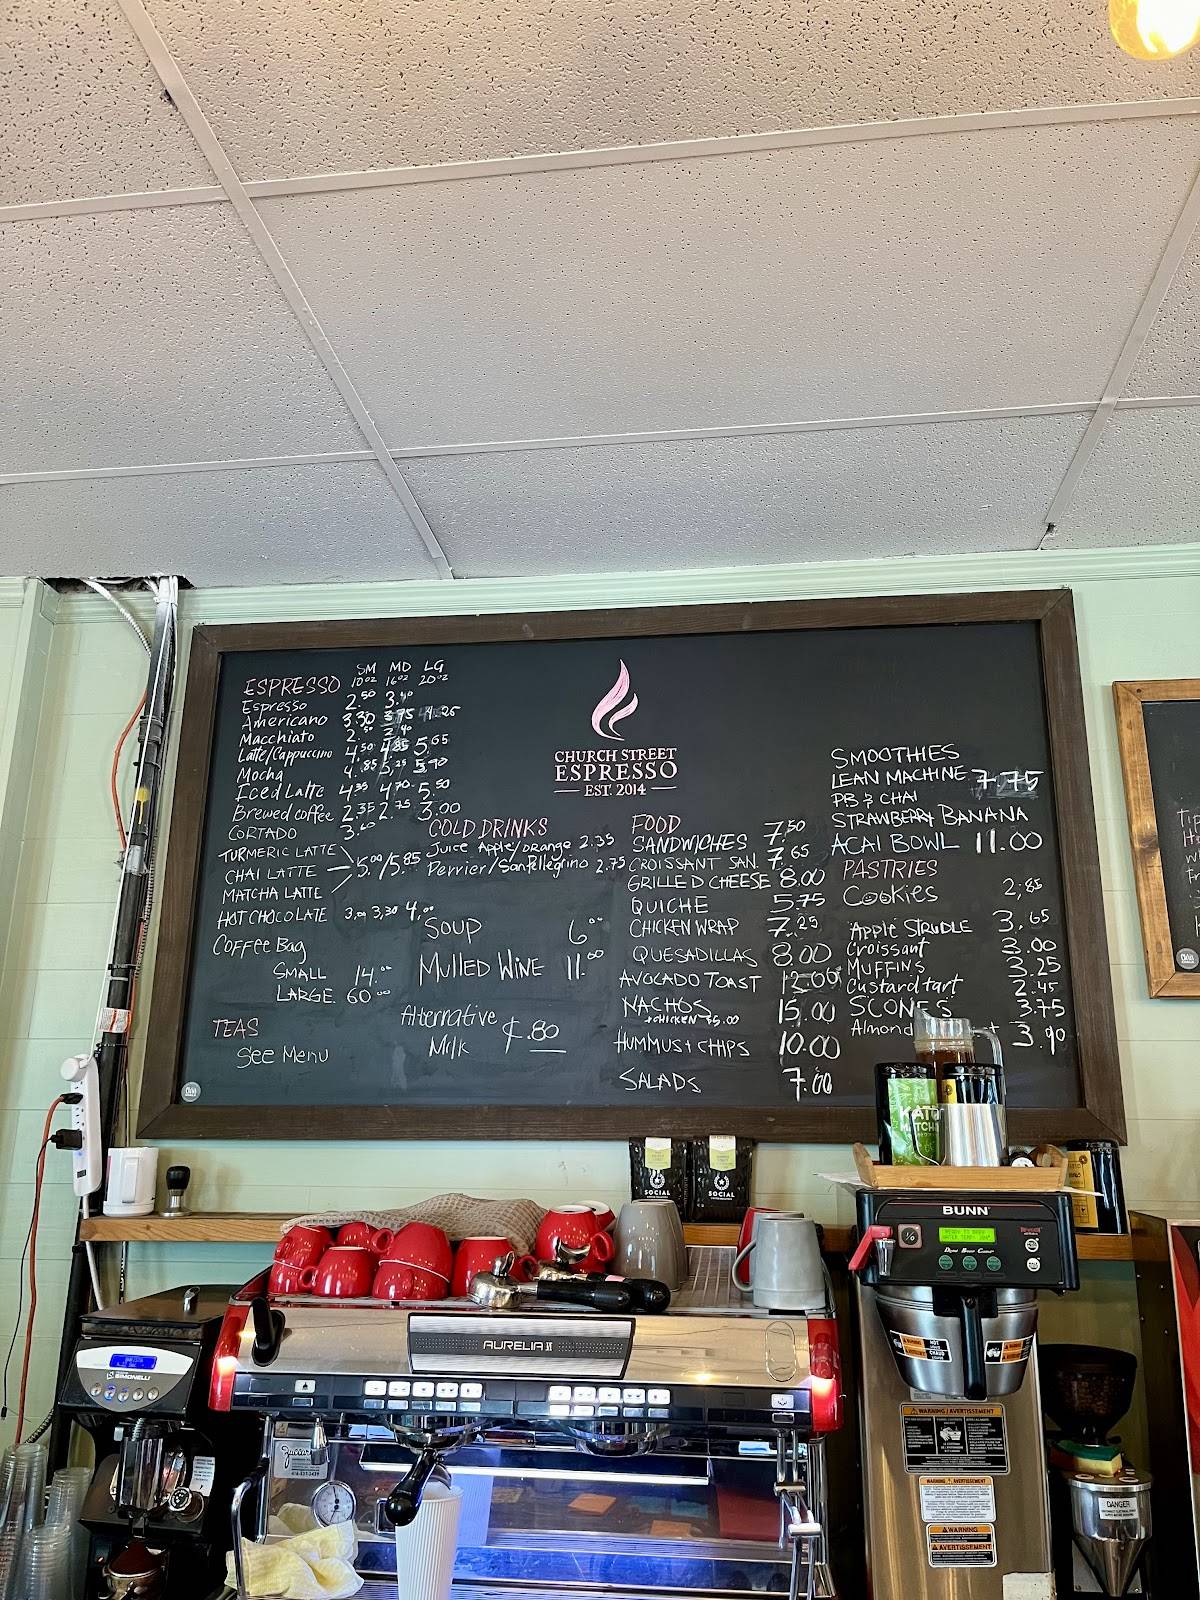 SM MD LG
ESPRESSO 10oz 16oz 20oz
Espresso 2.50 3.40
Americano 3.30 3.75 4.25
Macchiato 2.
Latte/Cappuccino 4.50 4.85 5.65
Mocha 4.85 5.25 5.90
Iced Latte 4.35 4.70 5.50
Brewed coffee 2.35 2.75 3.00
CORTADO 3.60
TURMERIC LATTE
CHAI LATTE 5.00/5.85
MATCHA LATTE
HOT CHOCOLATE 3.00 3.30 4.00
Coffee Bag
SMALL 14.00
LARGE 60.00
TEAS
See Menu
COLD DRINKS
Juice Apple/orange 2.35
Perrier/Sanpellegrino 2.75
SOUP 6.00
MULLED WINE 11.00
Alternative
Milk ¢.80
CHURCH STREET
ESPRESSO
EST. 2014
FOOD
SANDWICHES 7.50
CROISSANT SAN. 7.65
GRILLED CHEESE 8.00
QUICHE 5.75
CHICKEN WRAP 7.25
QUESADILLAS 8.00
AVOCADO TOAST 12.00
NACHOS 15.00
+CHICKEN $5.00
HUMMUS + CHIPS 10.00
SALADS 7.00
SMOOTHIES
LEAN MACHINE 7.75
PB & CHAI
STRAWBERRY BANANA
ACAI BOWL 11.00
PASTRIES
Cookies 2.85
Apple STRUDLE 3.65
Croissant 3.00
MUFFINS 3.25
Custard tart 2.45
SCONES 3.75
Almond 3.90
KATO
MATCHA
SOCIAL
SOCIAL
BUNN
AURELIA II
SIMONELLI
WARNING / AVERTISSEMENT
WARNING AVERTISSEMENT
WARNING
AVERTISSEMENT
DANGER